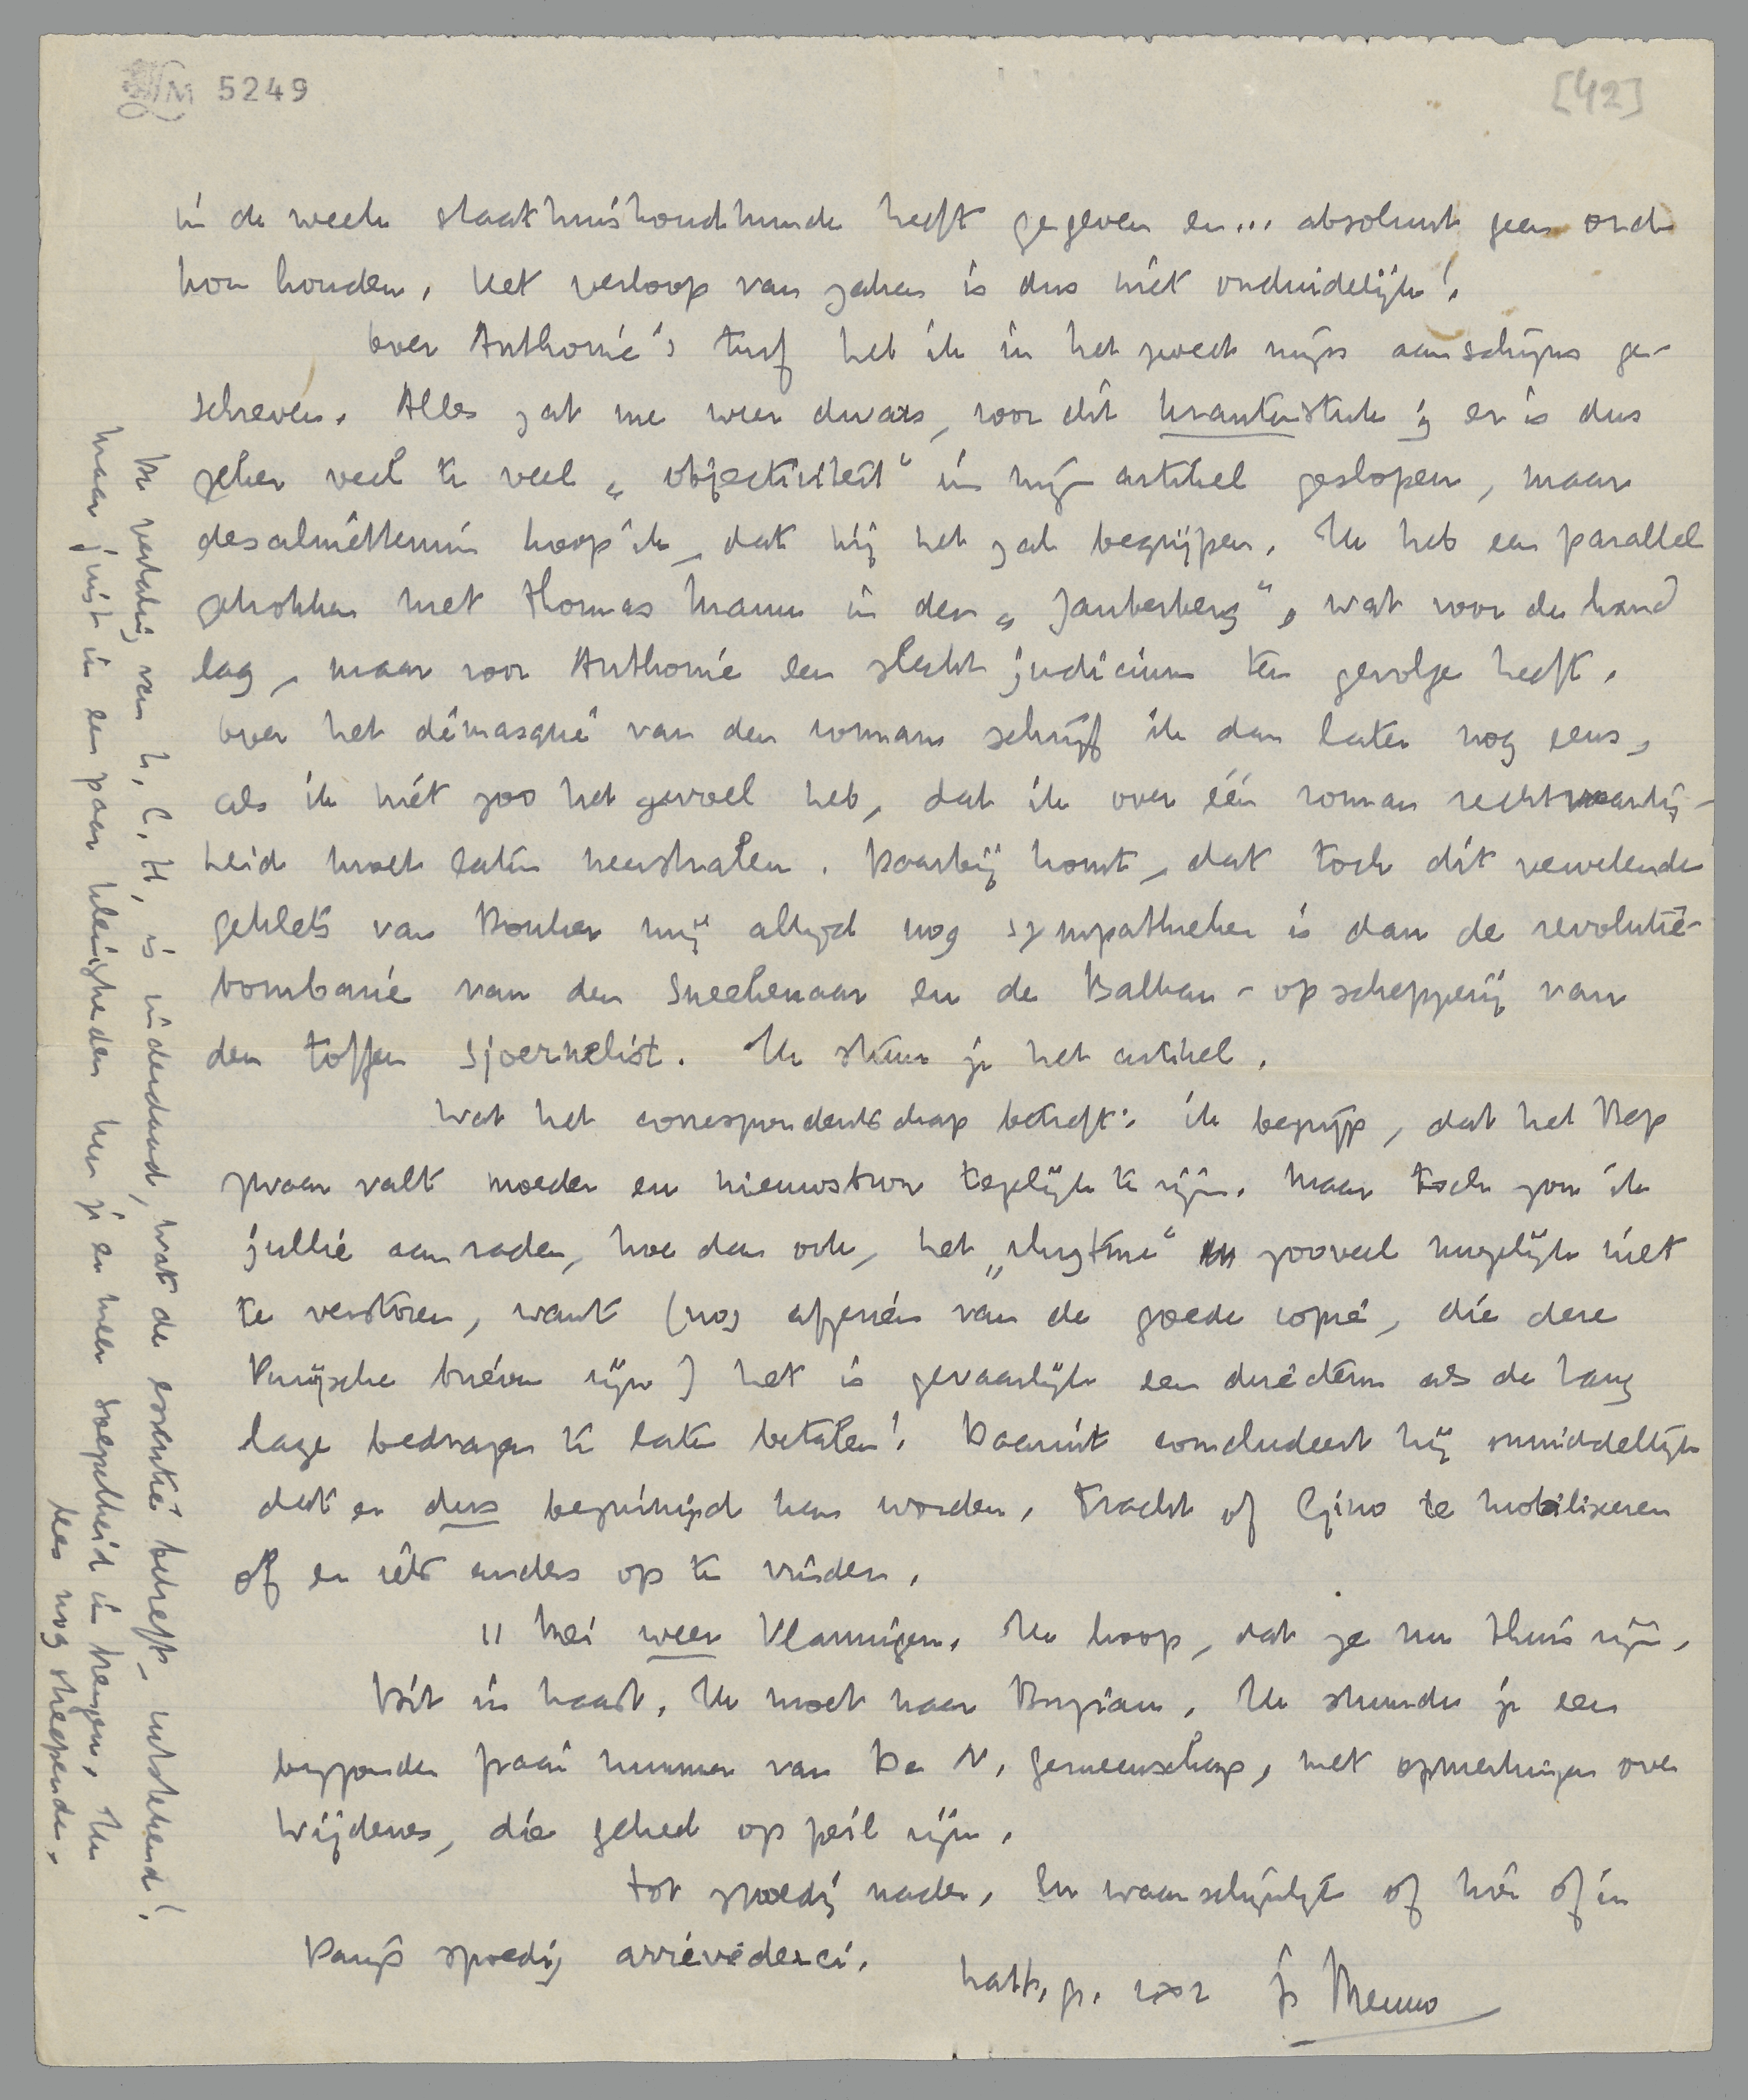 5249
[42]
in de week staathuishoudkunde heeft gegeven en... absoluut geen orde
kon houden. Het verloop van zaken is dus niet onduidelijk!
Over Anthonie's turf heb ik in het zweet mijns aanschijns ge-
schreven. Alles zat me weer dwars, voor dit krantenstuk; er is dus
zeker veel te veel „objectiviteit" in mijn artikel geslopen, maar
desalniettemin hoop ik, dat hij het zal begrijpen. Ik heb een parallel
getrokken met Thomas Mann in den „Zauberberg", wat voor de hand
lag, maar voor Anthonie een slecht judicium ten gevolge heeft.
Over het démasqué van den roman schrijf ik dan later nog eens,
als ik niet zoo het gevoel heb, dat ik over één roman rechtvaardig-
heid moet laten neerstralen. Daarbij komt, dat toch dit vervelende
geklets van Donker mij altijd nog sympathieker is dan de revolutie-
bombarie van den Sneekenaar en de Balkan-opschepperij van
den toffen sjoernelist. Ik stuur je het artikel.
Wat het correspondentschap betreft: ik begrijp, dat het Bep
zwaar valt moeder en nieuwsbron tegelijk te zijn. Maar toch zou ik
jullie aanraden, hoe dan ook, het „rhytme" zooveel mogelijk niet
te verstoren, want (nog afgezien van de goede copie, die deze
Parijsche brieven zijn) het is gevaarlijk een directeur als de Haag
lage bedragen te laten betalen! Daaruit concludeert hij onmiddellijk
dat er dus bezuinigd kan worden. Tracht of Gino te mobiliseeren
of er iets anders op te vinden.
11 Mei weer Vlamingen. Ik hoop, dat ze nu thuis zijn.
Dit in haast. Ik moet naar Bogiau. Ik stuurde je een
bijzonder fraai nummer van De N. Gemeenschap, met opmerkingen over
Wijdeves, die geheel op peil zijn.
Tot spoedig nader. En waarschijnlijk of hier of in
Parijs spoedig arrievederci.
hart. gr. voor je Menno
De vertaling van H. C. H. is inderdaad, wat de essentie betreft, uitstekend!
Maar juist in een paar kleinigheden kun je er meer soepelheid in krijgen. Ik
lees nog steeds.